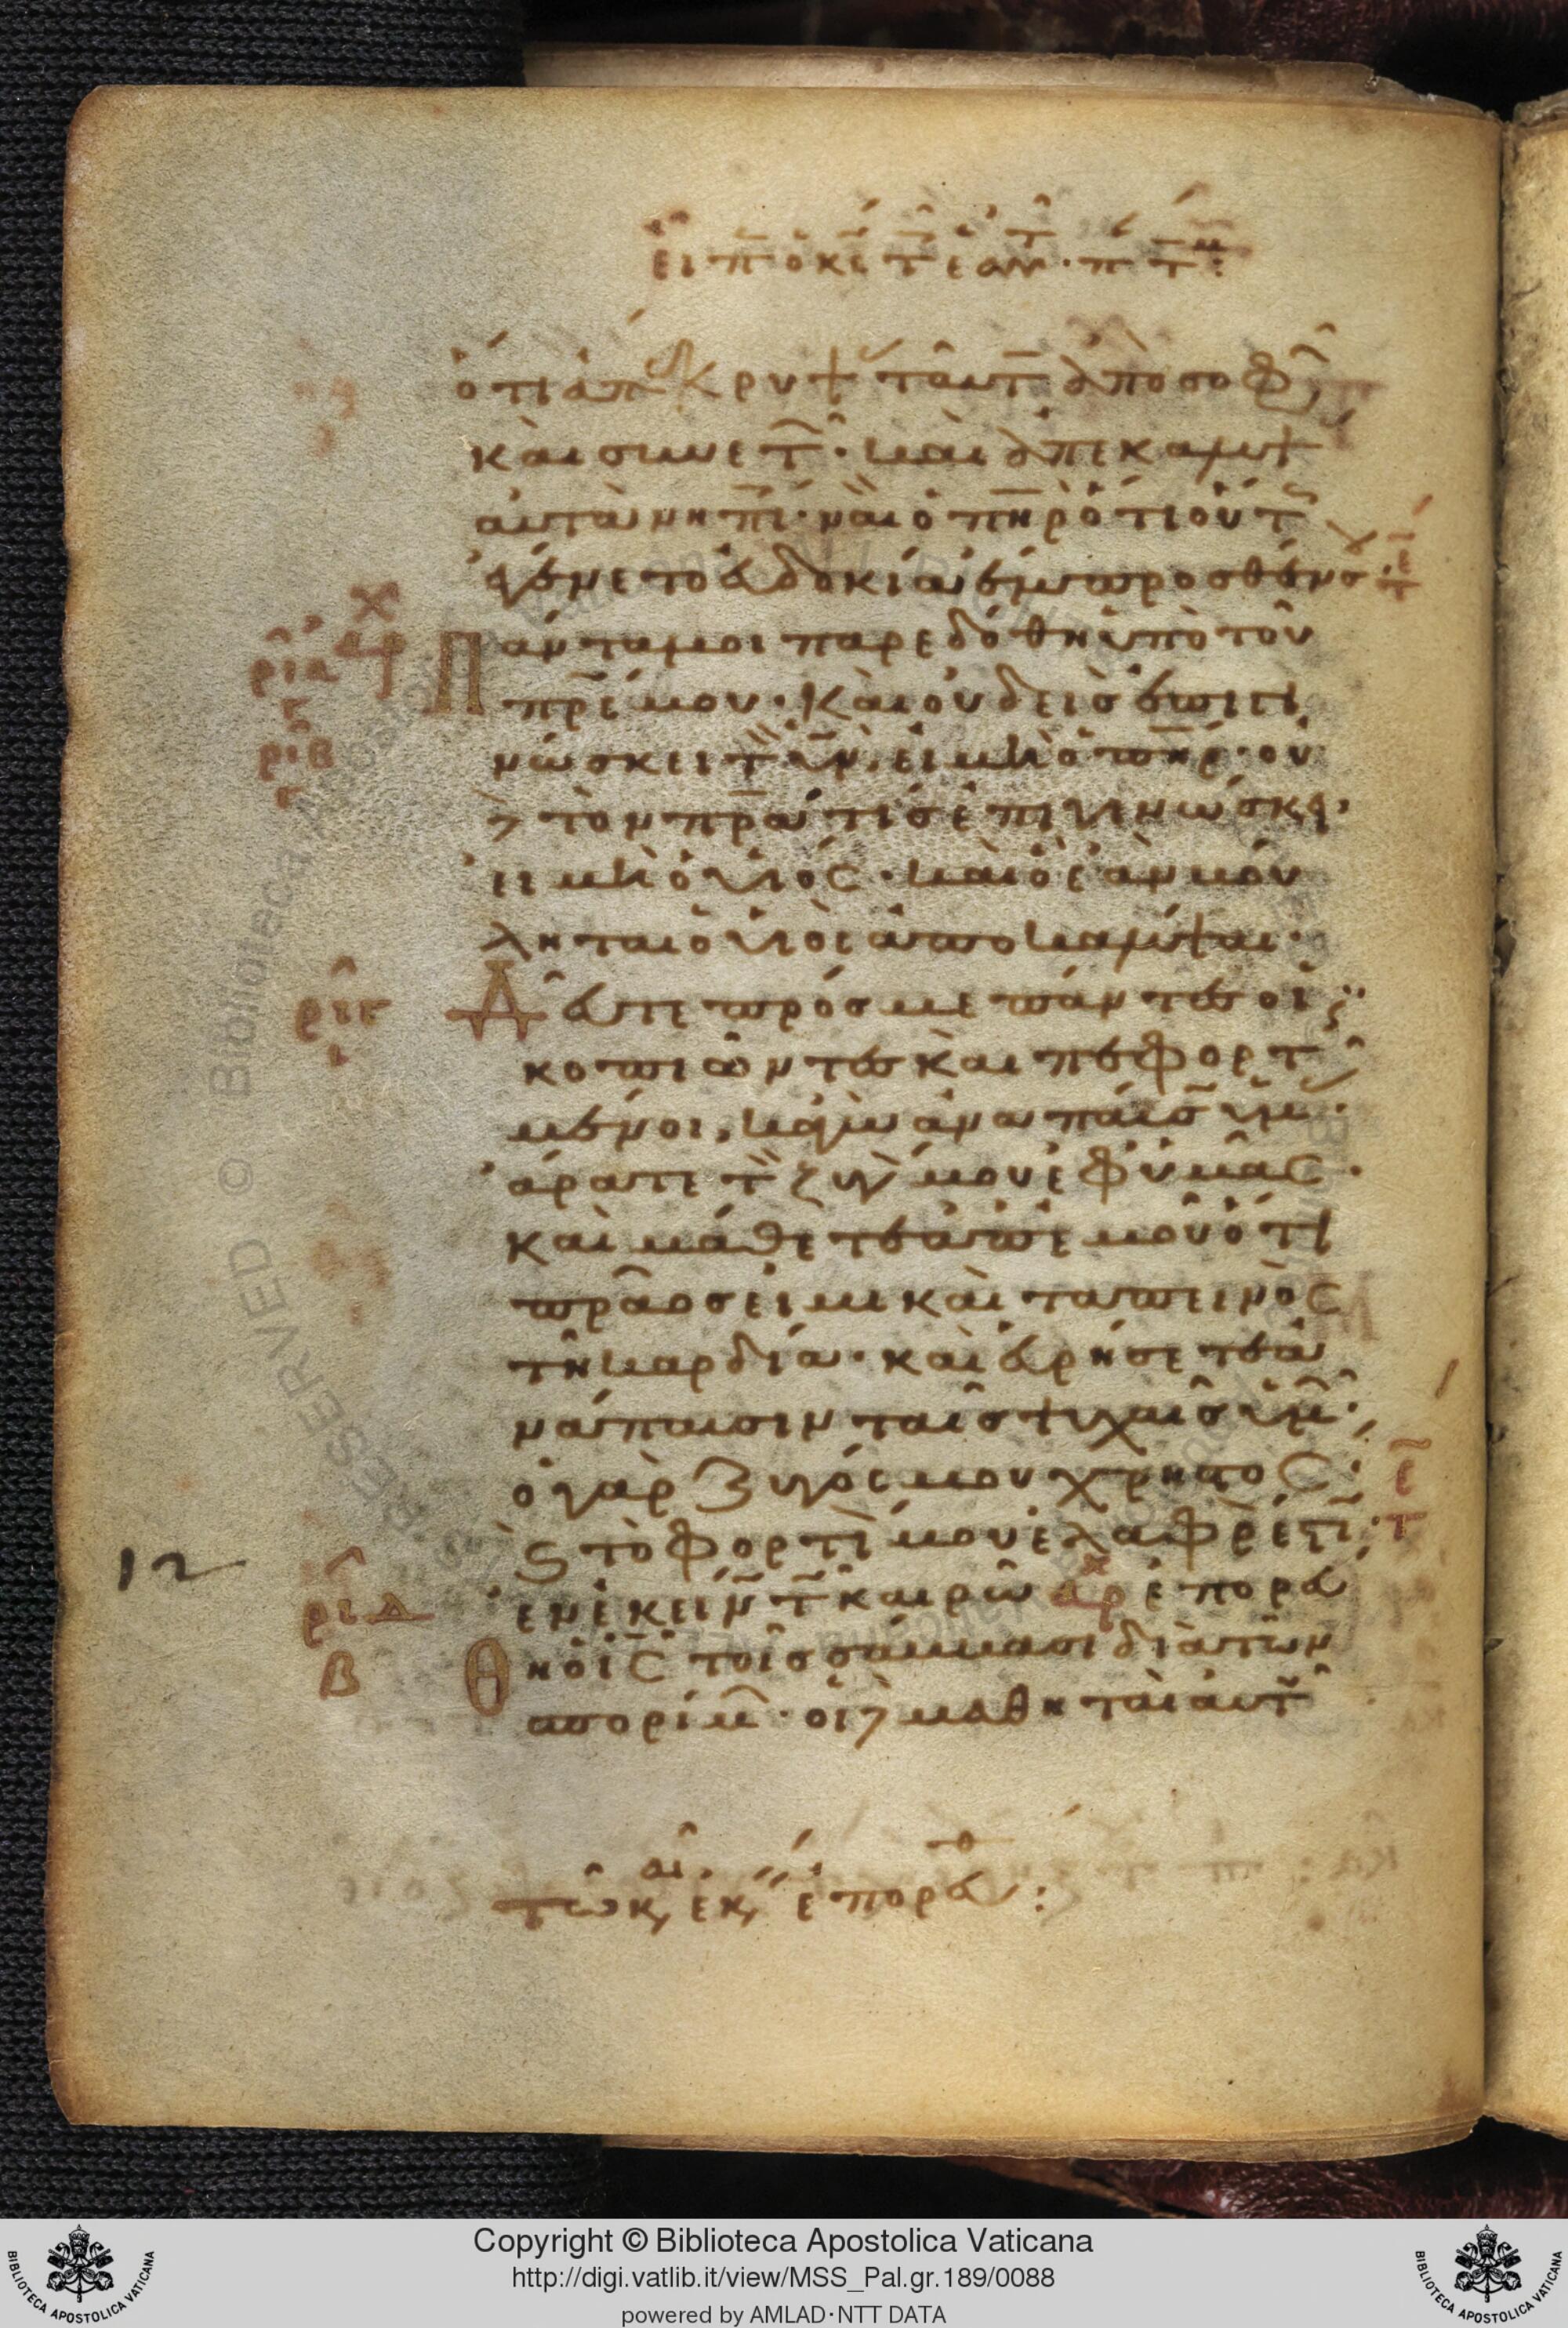 ὅτι ἀπέκρυψ ταῦτ ἀπὸ σοφῶ
καὶ συνετῶ· καὶ ἀπεκαλυψ
αὐτὰ νηπί· ναὶ ὁ πηρ ὅτι οὕτ
ἐγένετο εὐδοκία ἔμπροσθέν σ·
Παντα μοι παρεδόθη ὑπὸ τοῦ
πρς μου· καὶ οὐδεὶς ἐπιγι
νώσκει τὸν υν, εἰ μὴ ὁ πηρ· οὐ
δὲ τὸν πρα τίς ἐπιγινώσκει,
εἰ μὴ ὁ υἱός· καὶ ὁ ἐὰν βού
ληται ὁ υἱὸς ἀποκαλύψαι·
Δεῦτε πρός με πάντες οἱ
κοπιῶντες καὶ πεφορτ
μένοι, κἀγὼ ἀναπαύσω ὑμ·
ἄρατε τὸν ζυγὸν μου ἐφ ὑμᾶς·
καὶ μάθετε ἀπ ἐμοῦ ὅτι
πρᾶος εἰμι καὶ ταπεινὸς
τῇ καρδία· καὶ εὑρήσετε ἀ
νάπαυσιν ταῖς ψυχαῖς ὑμῶ·
ὁ γὰρ ζυγός μου χρηστὸς·
καὶ τὸ φορτί μου ἐλαφρόν ἐστι·
ἐν ἐκείν τῶ καιρῶ ἀρχ ἐπορεύ
θη ὁ ις τοῖς σάββασι διὰ τῶν
σπορίμ· οἱ δὲ μαθηταὶ αὐτοῦ
ρια
ριβ
ριγ
ριδ
β
12
τῶ κ, ἐκ, ἐπορεύθ:
Copyright © Biblioteca Apostolica Vaticana
http://digi.vatlib.it/view/MSS_Pal.gr.189/0088
powered by AMLAD·NTT DATA
BIBLIOTECA APOSTOLICA VATICANA
BIBLIOTECA APOSTOLICA VATICANA